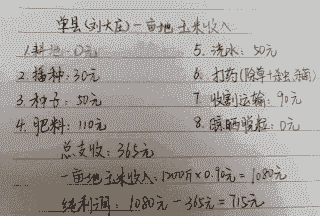 单县(刘大庄)一亩地玉米收入
1.耕地:0元 5. 浇水:50元
2. 播种:30元 6. 打药(除草+杀虫
3. 种子:50元 7. 收割运输:90元
4. 肥料:110元 8. 晾晒脱粒:0元
总支收:365元
一亩地玉米收入:1200斤×0.90元=1080元
纯利润:1080元-365元=715元